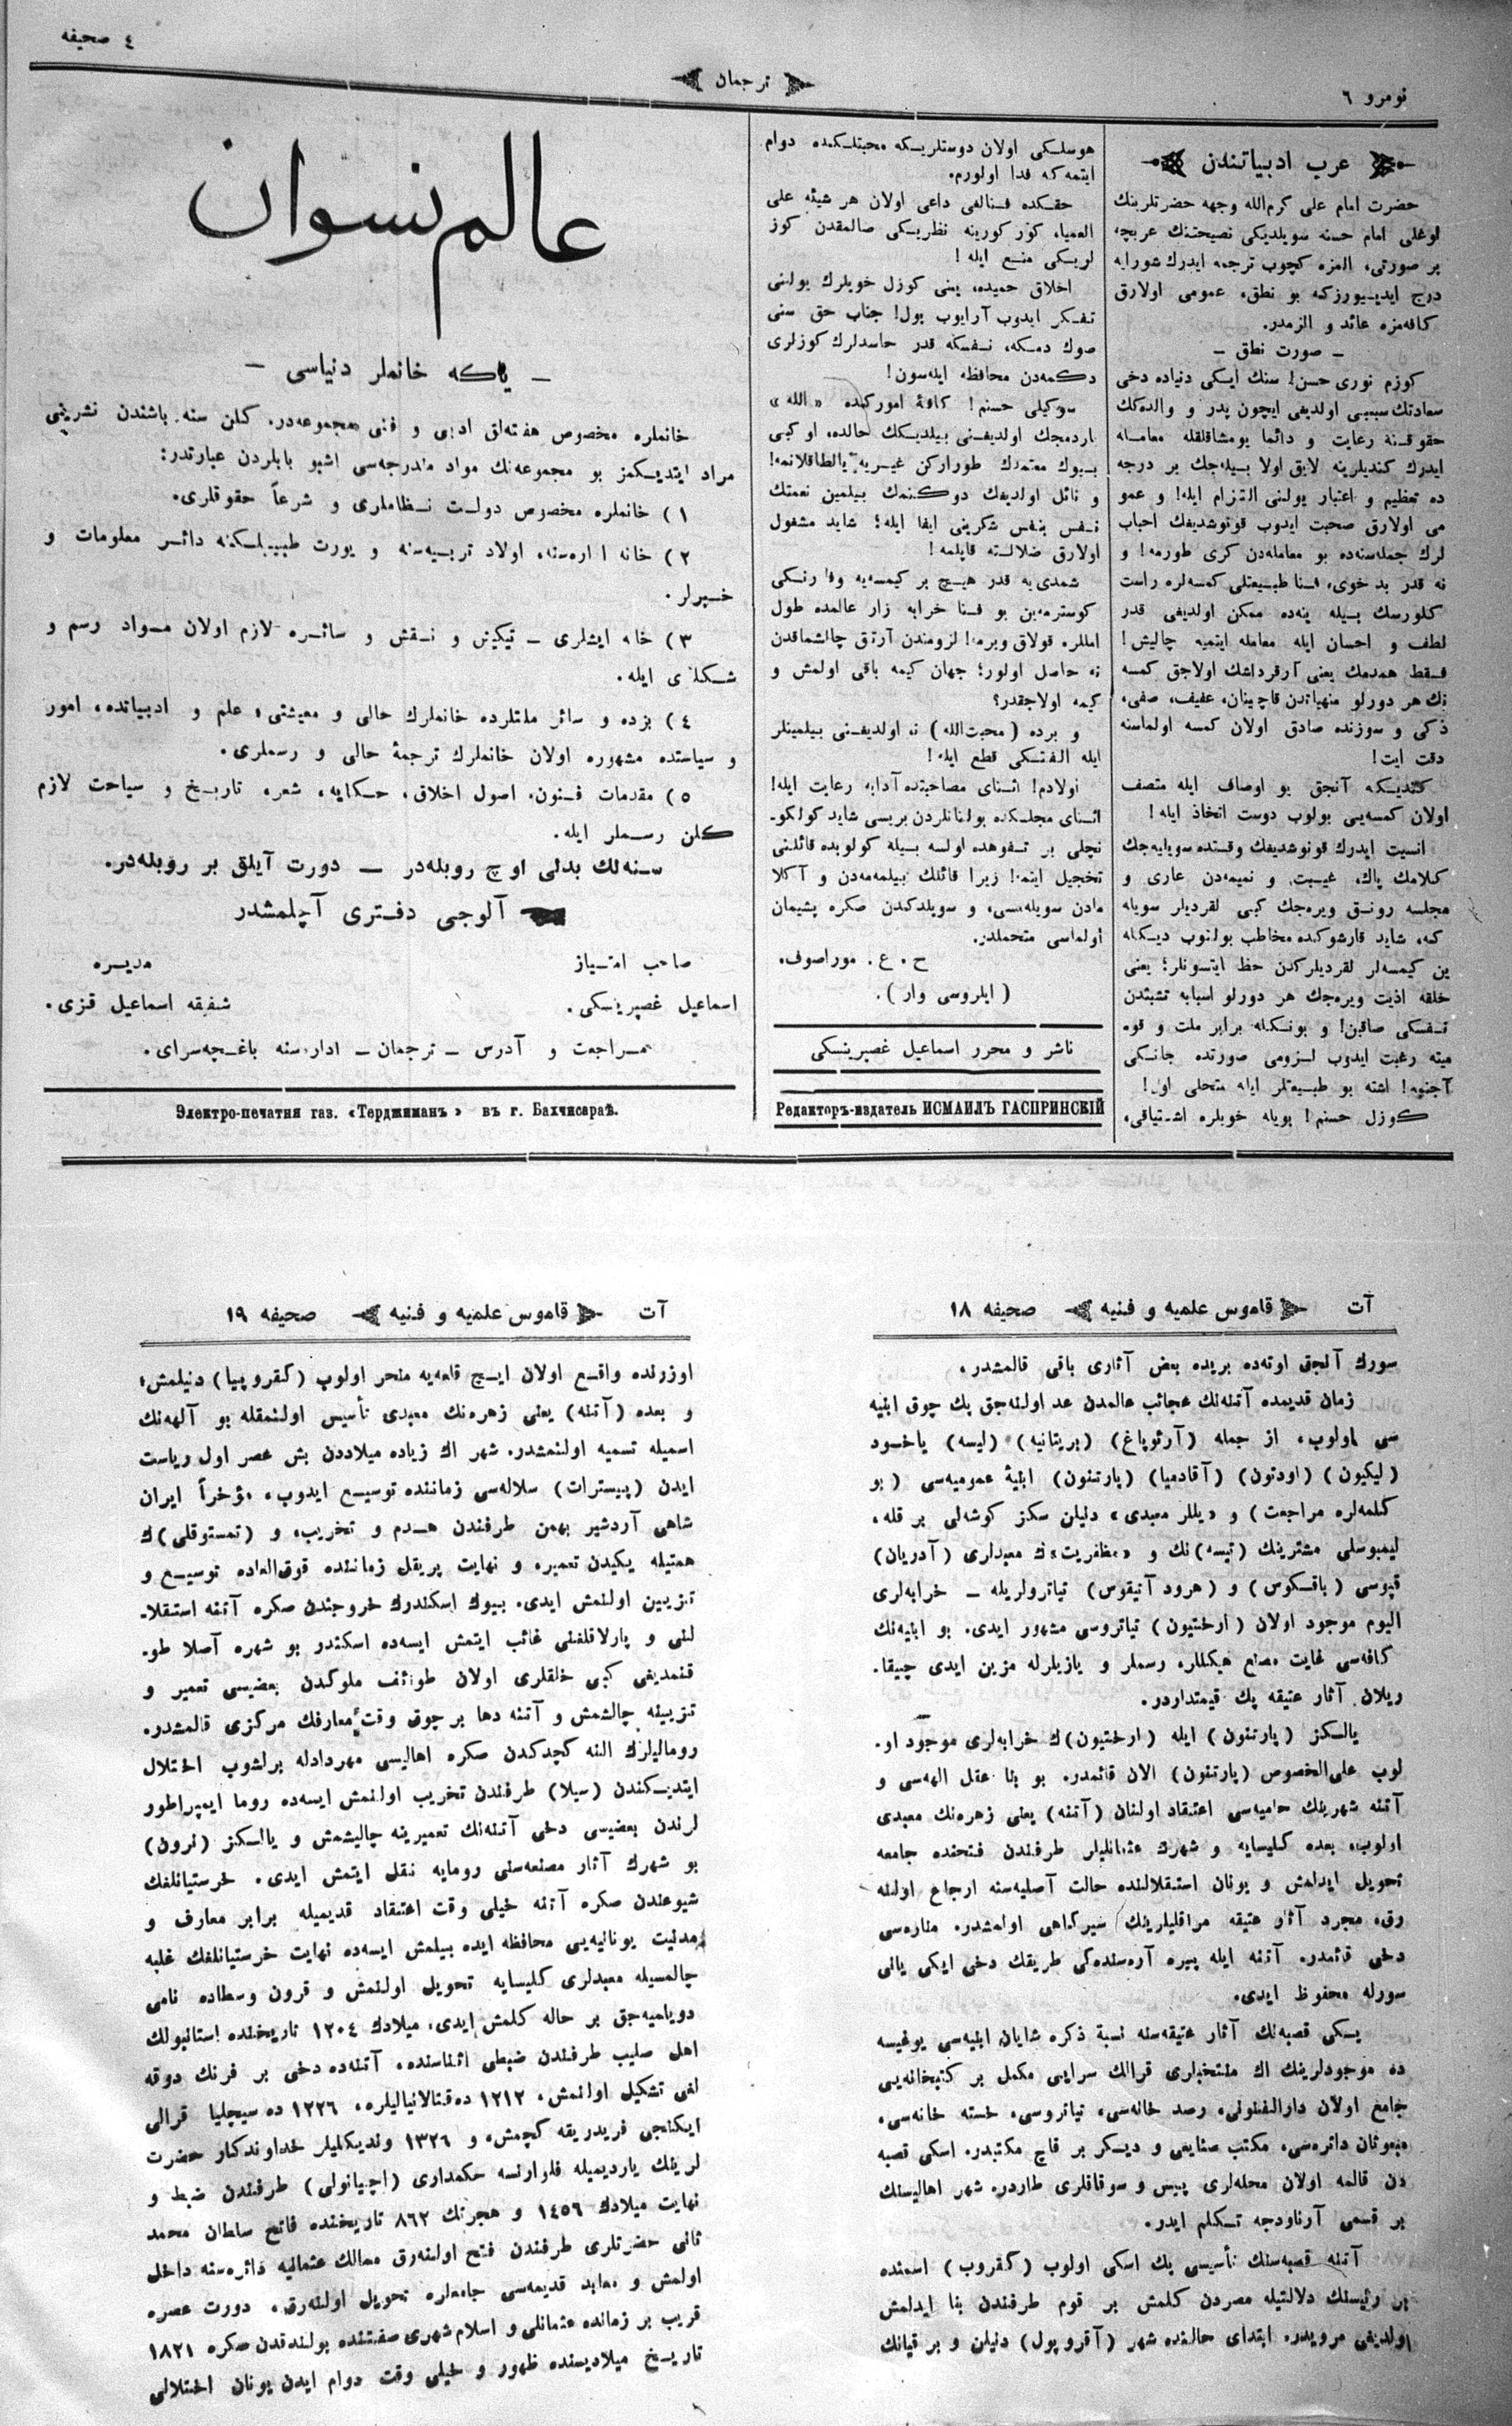 نومرو ٦
ترجمان
٤ صحیفه
عرب ادبیاتندن
حضرت امام علی كرم‌الله وجهه حضرتلرینك
اوغلی امام حسنه سویلدیكی نصیحتنك عربچه
بر صورتی، المزه كچوب ترجمه ایدرك شورایه
درج ایدییورزكه بو نطق، عمومی اولارق
كافه‌مزه عائد و الزمدر.
— صورت نطق —
كوزم نوری حسن! سنك ایكی دنیاده دخی
سعادتك سببی اولدیغی ایچون پدر و والده‌ك
حقوقنه رعایت و دائما یومشاقلقله معامله
ایدرك كندیلرینه لایق اولا بیله‌جك بر درجه
ده تعظیم و اعتبار یولنی التزام ایله! و عمو
می اولارق صحبت ایدوب قونوشدیغك احباب
لرك جمله‌سنده بو معامله‌دن كری طورمه! و
نه قدر بد خوی، فنا طبیعتلی كمسه‌لره راست
كلورسك بیله ینه‌ده ممكن اولدیغی قدر
لطف و احسان ایله معامله ایتمیه چالیش!
فقط همدمك یعنی آرقرداشك اولاجق كمسه
نك هر دورلو منهیاتدن قاچینان، عفیف، صفی،
ذكی و سوزنده صادق اولان كمسه اولماسنه
دقت ایت!
كندیكه آنجق بو اوصاف ایله متصف
اولان كمسه‌یی بولوب دوست اتخاذ ایله!
انسیت ایدرك قونوشدیغك وقتده سویلیه‌جك
كلامك پاك، غیبت و نمیمه‌دن عاری و
مجلسه رونق ویره‌جك كبی لقردیلر سویله
كه، شاید قارشوكده مخاطب بولنوب دیكله
ین كیمسه‌لر لقردیلركدن حظ ایتسونلر؛ یعنی
خلقه اذیت ویره‌جك هر دورلو اسبابه تشبثدن
نفسكی صاقین! و بونكله برابر ملت و قو.
میته رغبت ایدوب لزومی صورتده جانكی
آجنمه! اشته بو طبیعتلر ایله متحلی اول!
كوزل حسنم! بویله خویلره اشتیاقی،
هوسلكی اولان دوستلریكه محبتلكمده دوام
ایتمه‌كه فدا اولورم.
حقكده فنالغی داعی اولان هر شیئه علی
العمیا، كور كورینه نظریكی صالمقدن كوز
لریكی منع ایله!
اخلاق حمیده، یعنی كوزل خویلرك یولنی
تفكر ایدوب آرایوب بول! جناب حق سنی
صوك دمكه، نفسكه قدر حاسدلرك كوزلری
دكمه‌دن محافظه ایله‌سون!
سوكیلی حسنم! كافهٔ اموركده «الله»
یاردمجك اولدیغنی بیلدیكك حالده، او كبی
بیوك معتمدك طوراركن غیریه یالطاقلانمه!
و نائل اولدیغك دوكنمك بیلمین نعمتك
نفس بنفس شكرینی ایفا ایله؛ شاید مشغول
اولارق ضلالته قاپیلمه!
شمدی‌یه قدر هیچ بر كیمسه‌یه وفا رنكی
كوسترمه‌ین بو فنا خرابه زار عالمده طول
امللره قولاق ویرمه! لزومندن آرتق چالشماقدن
نه حاصل اولور؛ جهان كیمه باقی اولمش و
كیمه اولاجقدر؟
و برده (محبت‌الله) نه اولدیغنی بیلمینلر
ایله الفتكی قطع ایله!
اولادم! اثنای مصاحبتده آدابه رعایت ایله!
اثنای مجلسكده بولنانلردن بریسی شاید كولكو-
نچلی بر تفوهده اولسه بیله كولوبده قائلنی
تخجیل ایتمه! زیرا قائلك بیلمه‌مه‌دن و آكلا
مادن سویله‌مسی، و سویلدكدن صكره پشیمان
اولماسی متحملدر.
ح. ع. موراصوف.
(ایلروسی وار).
ناشر و محرر اسماعیل غصپرینسكی
Редакторъ-издатель ИСМАИЛЪ ГАСПРИНСКІЙ
عالم نسوان
— یاكه خانملر دنیاسی —
خانملره مخصوص هفته‌لق ادبی و فنی مجموعه‌در. كلن سنه باشندن نشرینی
مراد ایتدیكمز بو مجموعه‌نك مواد مندرجه‌سی اشبو بابلردن عبارتدر:
١) خانملره مخصوص دولت نظاملری و شرعاً حقوقلری.
٢) خانه اداره‌سنه، اولاد تربیه‌سنه و یورت طبیبلكنه دائر معلومات و
خبرلر.
٣) خانه ایشلری — تیكیش و نقش و سائره لازم اولان مواد رسم و
شكللری ایله.
٤) بزده و سائر ملتلرده خانملرك حالی و معیشتی، علم و ادبیاتده، امور
و سیاستده مشهوره اولان خانملرك ترجمهٔ حالی و رسملری.
٥) مقدمات فنون، اصول اخلاق، حكایه، شعر، تاریخ و سیاحت لازم
كلن رسملر ایله.
سنه‌لك بدلی اوچ روبله‌در — دورت آیلق بر روبله‌در.
آلوجی دفتری آچلمشدر
صاحب امتیاز
مدیره
اسماعیل غصپرینسكی.
شفیقه اسماعیل قزی.
مراجعت و آدرس — ترجمان — اداره‌سنه باغچه‌سرای.
Электро-печатня газ. «Терджиманъ» въ г. Бахчисараѣ.
آت
قاموس علمیه و فنیه
صحیفه ١٨
سورك آلجق اوته‌ده بریده بعض آثاری باقی قالمشدر.
زمان قدیمده آتنه‌نك عجائب عالمدن عد اولنه‌جق پك چوق ابنیه
سی اولوب، از جمله (آرئوپاغ) (پریتانیه) (لیسه) یاخود
(لیكیون) (اودئون) (آقادمیا) (پارتنون) ابنیهٔ عمومیه‌سی (بو
كلمه‌لره مراجعت) و «یللر معبدی» دنیلن سكز كوشه‌لی بر قله،
لیمبوسلی مشترینك (تیسه)نك و «مظفریت»ك معبدلری (آدریان)
قپوسی (باقكوس) و (هرود آتیقوس) تیاترولریله — خرابه‌لری
الیوم موجود اولان (ارختیون) تیاتروسی مشهور ایدی. بو ابنیه‌نك
كافه‌سی غایت مصنع هیكللر، رسملر و یازیلرله مزین ایدی چیقا.
ریلان آثار عتیقه پك قیمتداردر.
یالكز (پارتنون) ایله (ارختیون)ك خرابه‌لری موجود او.
لوب علی‌الخصوص (پارتنون) الان قائمدر. بو بنا عقل الهه‌سی و
آتنه شهرینك حامیه‌سی اعتقاد اولنان (آتنه) یعنی زهره‌نك معبدی
اولوب، بعده كلیسایه و شهرك عثمانلیلر طرفندن فتحنده جامعه
تحویل ایدلمش و یونان استقلالنده حالت آصلیه‌سنه ارجاع اولنه
رق، مجرد آثار عتیقه مراقلیلرینك سیركاهی اولمشدر. مناره‌سی
دخی قائمدر. آتنه ایله پیره آره‌سنده‌كی طریقك دخی ایكی یانی
سورله محفوظ ایدی.
یسكی قصبه‌نك آثار عتیقه‌سنه نسبة ذكره شایان ابنیه‌سی یوغیسه
ده موجودلرینك اك منتخبلری قرالك سرایی مكمل بر كتبخانه‌یی
جامع اولان دارالفنونی، رصد خانه‌سی، تیاتروسی، خسته خانه‌سی،
مبعوثان دائره‌سی، مكتب صنایعی و دیكر بر قاچ مكتبدر. اسكی قصبه
دن قالمه اولان محله‌لری پیس و سوقاقلری طاردر. شهر اهالیسنك
بر قسمی آرناودجه تكلم ایدر.
آتنه قصبه‌سنك تأسیسی پك اسكی اولوب (كقروپ) اسمنده
بر رئیسنك دلالتیله مصردن كلمش بر قوم طرفندن بنا ایدلمش
اولدیغی مرویدر. ابتدای حالنده شهر (آقروپول) دنیلن و بر قیانك
آت
قاموس علمیه و فنیه
صحیفه ١٩
اوزرنده واقع اولان ایچ قلعه‌یه منحر اولوب (كقروپیا) دنیلمش؛
و بعده (آتنه) یعنی زهره‌نك معبدی تأسیس اولنمقله بو آلهه‌نك
اسمیله تسمیه اولنمشدر. شهر اك زیاده میلاددن بش عصر اول ریاست
ایدن (پیسترات) سلاله‌سی زماننده توسیع ایدوب، مؤخراً ایران
شاهی آردشیر بهمن طرفندن هدم و تخریب، و (تمستوقلی)ك
همتیله یكیدن تعمیر، و نهایت پریقل زماننده فوق‌العاده توسیع و
تزیین اولنمش ایدی. بیوك اسكندرك خروجندن صكره آتنه استقلا-
لنی و پارلاقلغنی غائب ایتمش ایسه‌ده اسكندر بو شهره آصلا طو.
قنمدیغی كبی خلفلری اولان طوائف ملوكدن بعضیسی تعمیر و
تزیینه چالشمش و آتنه دها بر چوق وقت معارفك مركزی قالمشدر.
رومالیلرك النه كچدكدن صكره اهالیسی مهردادله برلشوب اختلال
ایتدیكندن (سیلا) طرفندن تخریب اولنمش ایسه‌ده روما ایمپراطور
لرندن بعضیسی دخی آتنه‌نك تعمیرینه چالیشمش و یالكز (نرون)
بو شهرك آثار مصنعه‌سنی رومایه نقل ایتمش ایدی. خرستیانلغك
شیوعندن صكره آتنه خیلی وقت اعتقاد قدیمیله برابر معارف و
مدنیت یونانیه‌یی محافظه ایده بیلمش ایسه‌ده نهایت خرستیانلغك غلبه
چالمسیله معبدلری كلیسایه تحویل اولنمش و قرون وسطاده نامی
دویلمیه‌جق بر حاله كلمش ایدی، میلادك ١٢٠٤ تاریخنده استانبولك
اهل صلیب طرفندن ضبطی اثناسنده، آتنه‌ده دخی بر فرنك دوقه
لغی تشكیل اولنمش، ١٢١٢ ده قتالانیالیلره، ١٢٢٦ ده سیچلیا قرالی
ایكنجی فریدریقه كچمش، و ١٣٢٦ وندیكلیلر خداوندكار حضرت
لرینك یاردیمیله فلورانسه حكمداری (اچیانولی) طرفندن ضبط و
نهایت میلادك ١٤٥٦ و هجرتك ٨٦٢ تاریخنده فاتح سلطان محمد
ثانی حضرتلری طرفندن فتح اولنه‌رق ممالك عثمانیه دائره‌سنه داخل
اولمش و معابد قدیمه‌سی جامعلره تحویل اولنه‌رق، دورت عصره
قریب بر زمانده عثمانلی و اسلام شهری صفتنده بولندقدن صكره ١٨٢١
تاریخ میلادیسنده ظهور و خیلی وقت دوام ایدن یونان اختلالی